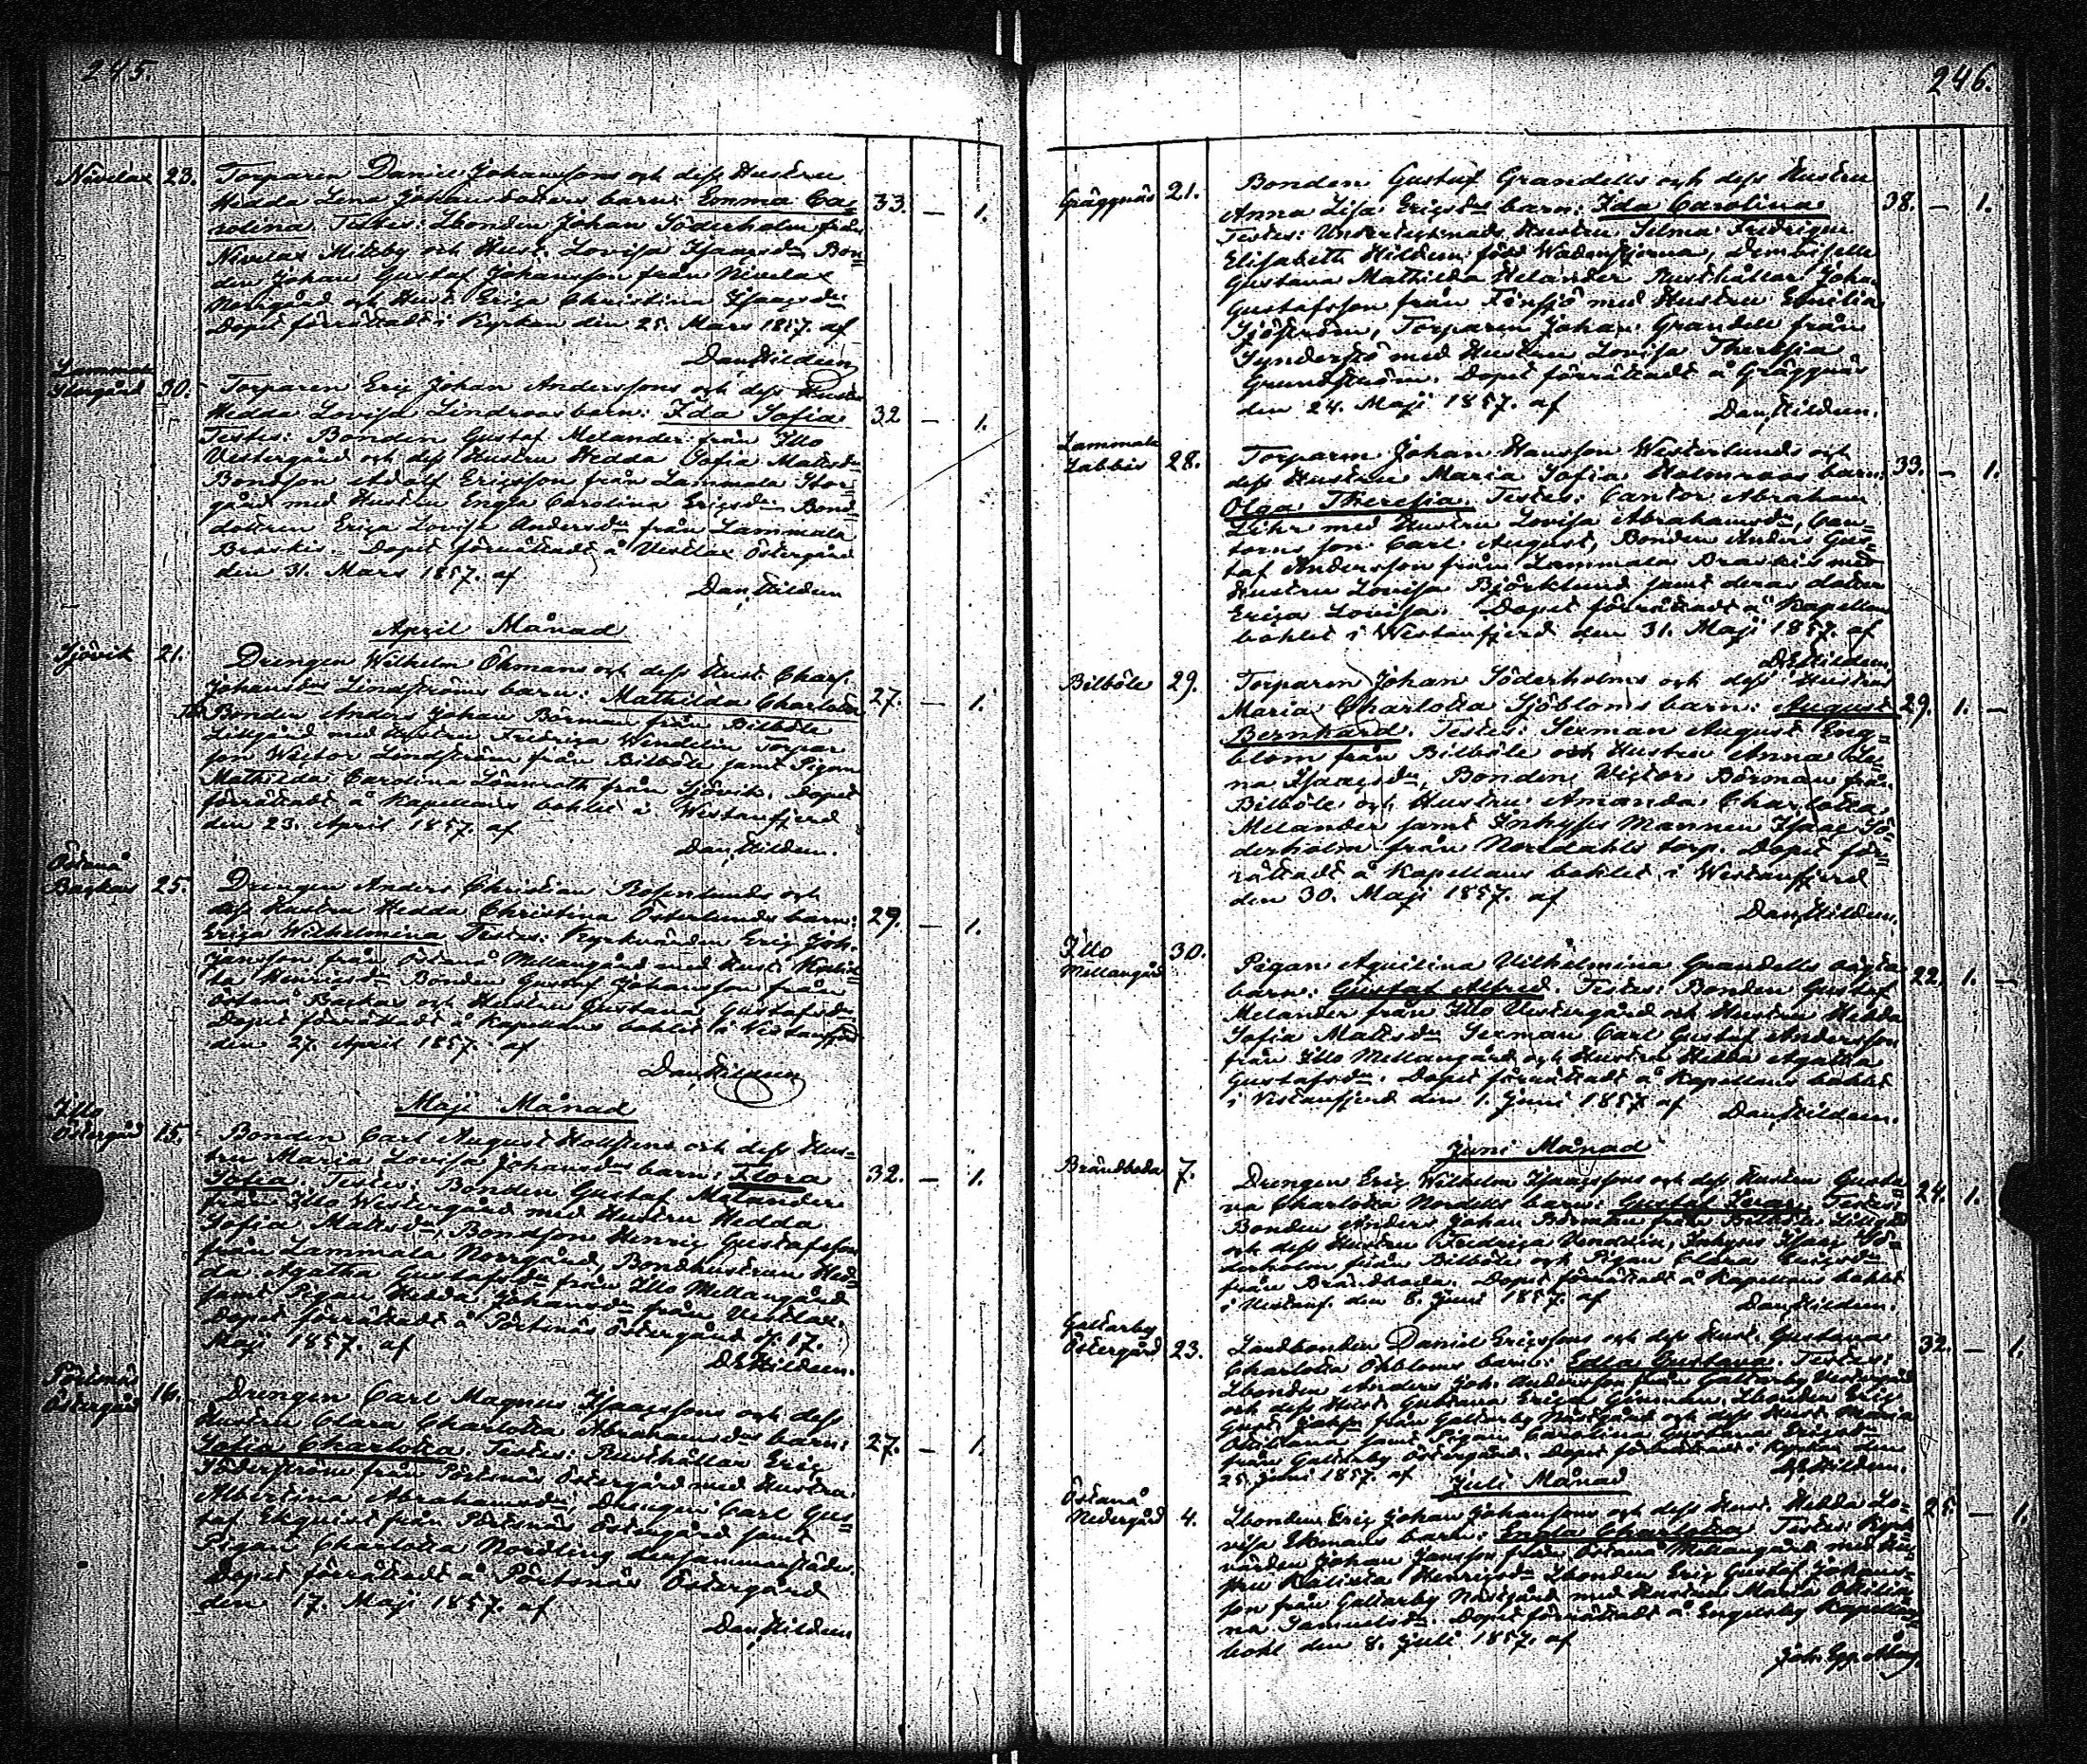 245.
Nivelax 23. Torparen Daniel Johanssons och dess Hustru
Hedda Lena Johansdotters barn: Emma Ca= 33. — 1.
rolina Testes: Lbonden Johan Söderholm från
Nivelax Mikby och Hust. Lovisa Isaacsdr Bon=
den Johan Gustaf Johansson från Nivelax
Norrgård och Hust. Erica Christina Isaacsdr
Dopet förrättadt i Kyrkan den 25. Mars 1857. af
Dan. Hildeen
Lammala
Storgård 30. Torparen Eric Johan Anderssons och dess Hustru
Hedda Lovisa Lindroos barn: Ida Sofia 32 — 1.
Testes: Bonden Gustaf Melander från Illo
Vestergård och dess Hustru Hedda Sofia Matsdr
Bondson Adolf Ericsson från Lammala Stor=
gård med Hustru Engla Carolina Ericsdr Bond=
dottren Erica Lovisa Andersdr från Lammala
Braskis. Dopet förrättadt å Vestlax Östergård
den 31. Mars 1857. af
Dan. Hildeen
April Månad
Sjövik 21. Drengen Wilhelm Öhmans och dess Hust. Charl.
Johansdrs Lindströms barn: Mathilda Charlotta 27. — 1.
Bonden Anders Johan Börman från Bilböle
Lillgård med Hustru Fredrica Wendelin Torpar
son Wictor Lindström från Bilböle samt Pigan
Mathilda Carolina Lönnroth från Sjövik. Dopet
förrättadt å Kapellans bohlet i Westanfjerd
den 23. April 1857. af
Dan. Hildeen.
Östanå
Backas 25. Drengen Anders Christian Rosenlunds och
dess Hustru Hedda Christina Österlunds barn: 29. — 1.
Erica Wilhelmina Testes: Kyrkvärden Eric Joh.
Jansson från Östanå Mellangård med Hust. Kalix
ta Henricsdr Bonden Gustaf Johansson från
Östanå Backas och Hustru Gustava Gustafsdr
Dopet förrättadt å Kapellans bohlet i Westanfjerd
den 27. April 1857. af
Dan. Hildeen
Maji Månad
Illo
Östergård 15. Bonden Carl August Holstens och dess Hus=
tru Maria Lovisa Johansdrs barn: Flora 32. — 1.
Sofia. Testes: Bonden Gustaf Melander
från Illo Westergård med Hustru Hedda
Sofia Matsdr, Bondson Henric Gustafsson
från Lammala Norrgård, Bondhustrun Hed=
da Agatha Gustafsdr från Illo Mellangård
samt Pigan Hedda Johansdr från Vestlax.
Dopet förrättadt å Pörtsnäs Östergård d. 17.
Maji 1857. af
D E Hildeen.
Pörtsnäs
Östergård 16. Drengen Carl Magnus Isaacssons och dess
Hustru Clara Charlotta Abrahamsdrs barn: 27. — 1.
Sofia Charlotta. Testes: Rusthållar Eric
Söderström från Pörtsnäs Östergård med Hustru
Albertina Abrahamsdr, Drengen Carl Gus=
taf Ekqvist från Pörtsnäs Östergård samt
Pigan Charlotta Nordling dersammastädes.
Dopet förrättadt å Pörtsnäs Östergård
den 17. Maji 1857. af
Dan. Hildeen
246.
Gräggnäs 21. Bonden Gustaf Grandells och dess Hustru
Anna Lisa Ericsdrs barn: Ida Carolina 38. — 1.
Testes: Undertecknads Hustru Selma Fredrique
Elisabeth Hildeen född Wadenstjerna, Demoiselle
Gustava Mathilda Helander Rusthållar Joha.
Gustafsson från Finsjö med Hustru Emilia
Sjöström, Torparen Johan Grandell från
Synderstö med Hustru Lovisa Theresia
Grundström. Dopet förrättadt å Gräggnäs
den 24. Maji 1857. af Dan. Hildeen.
Lammala
Labbis 28. Torparen Johan Hansson Westerlunds och
dess Hustru Maria Sofia Holmroos barn: 33. — 1.
Olga Theresia. Testes: Cantor Abraham
Lihr med Hustru Lovisa Abrahamsdr, Can=
torns son Carl August, Bonden Anders Gus=
taf Andersson från Lammala Braskis med
Hustru Lovisa Björklund samt deras dotter
Erica Lovisa. Dopet förrättadt å Kapellans
bohlet i Westanfjerd den 31. Maji 1857. af
D E Hildeen.
Bilböle 29. Torparen Johan Söderholms och dess Hustru
Maria Charlotta Sjöbloms barn: August 29. 1. —
Bernhard. Testes: Sexman August Eng=
blom från Bilböle och Hustru Anna Le=
na Isaacsdr, Bonden Wictor Börman från
Bilböle och Hustru Amanda Charlotta
Melander samt Inhyses Mannen Isaac Sö=
derholm från Norrdahls torp. Dopet för=
rättadt å Kapellans bohlet i Westanfjerd
den 30. Maji 1857. af
Dan. Hildeen.
Illo
Mellangård 30. Pigan Aqvilina Vilhelmina Grandells oägta 22. 1. —
barn: Gustaf Alfred. Testes: Bonden Gustaf
Melander från Illo Vestergård och Hustru Hedda
Sofia Matsdr Sexman Carl Gustaf Andersson
från Illo Mellangård och Hustru Hedda Agatha
Gustafsdr. Dopet förrättadt å Kapellans bohlet
i Vestanfjerd den 1. Juni 1857 af Dan. Hildeen.
Juni Månad
Brändboda 7. Drengen Eric Wilhelm Isaacssons och dess Hustru Gusta=
va Charlotta Nordells barn: Gustaf Ivar. Testes: 24. 1.
Bonden Anders Johan Börman från Bilböle Lillgård
och dess Hustru Fredrica Vendelin, Inhyses Isaac Sö=
derholm från Bilböle och Pigan Clara Ericsdr
från Brändboda. Dopet förrättadt å Kapellans bohlet
i Vestanf. den 8. Juni 1857. af Dan. Hildeen.
Galtarby
Östergård 23. Landbonden Daniel Ericssons och dess Hust. Gustava 32. — 1.
Charlotta Ekbloms barn: Edla Gustava. Testes:
Lbonden Anders Joh. Andersson från Galtarby Vestergård
och dess Hust. Gustava Erica Lbonden Eric
Gust. Johss från Galtarby Nästgård och dess Hust. Maria
Ottiliana samt Pigan Carolina Gustava Ericsdr
från Galtarby Östergård. Dopet förrättadt i Kyrkan den
25. Juni 1857. af D E Hildeen.
Juli Månad
Östanå
Nedergård 4. Lbonden Eric Johan Johanssons och dess Hust. Hedda Lo= 25. — 1.
visa Ekmans barn: Engla Charlotta Testes: Kyrk=
värden Johan Jansson från Östanå Mellangård med Hus=
tru Kalixta Henricsdr Lbonden Eric Gustaf Johans=
son från Galtarby Nästgård med Hustru Maria Ottilia=
na Samuelsdr. Dopet förrättadt å Engelsby Kapellans
bohl den 8. Juli 1857. af